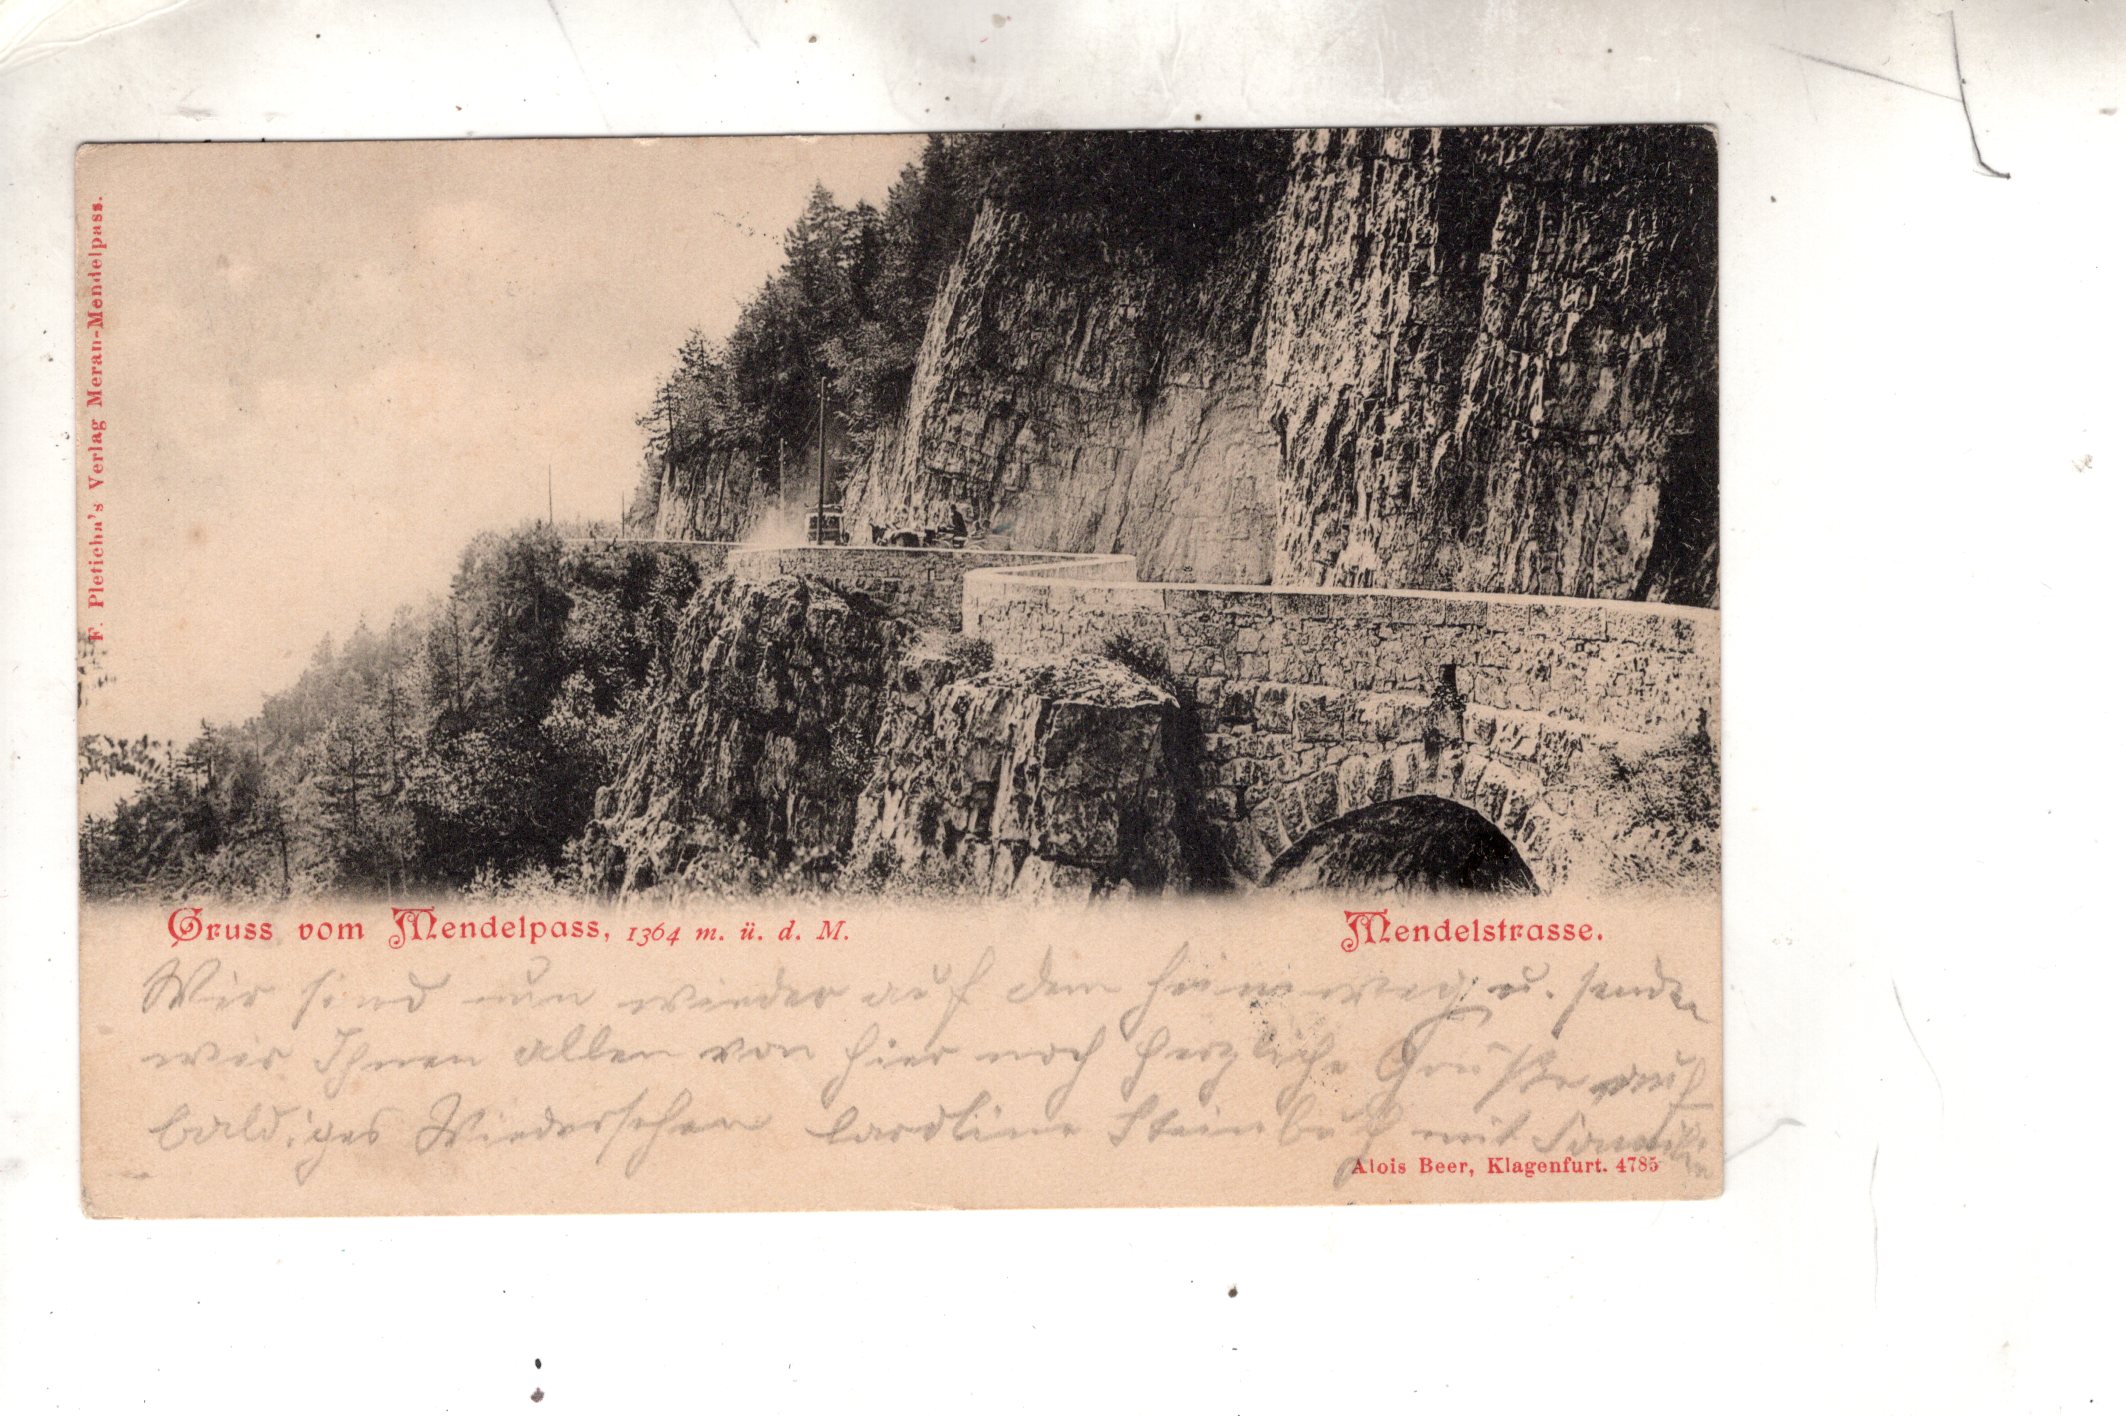 F. Pleticha's Verlag Meran-Mendelpass.
Gruss vom Mendelpass, 1364 m. ü. d. M.
Mendelstrasse.
Wir sind nun wieder auf dem Heimweg u. senden
wir Ihnen allen von hier noch herzliche Grüße auf
baldiges Wiedersehen Caroline Steinbuch mit Familie
Alois Beer, Klagenfurt. 4785